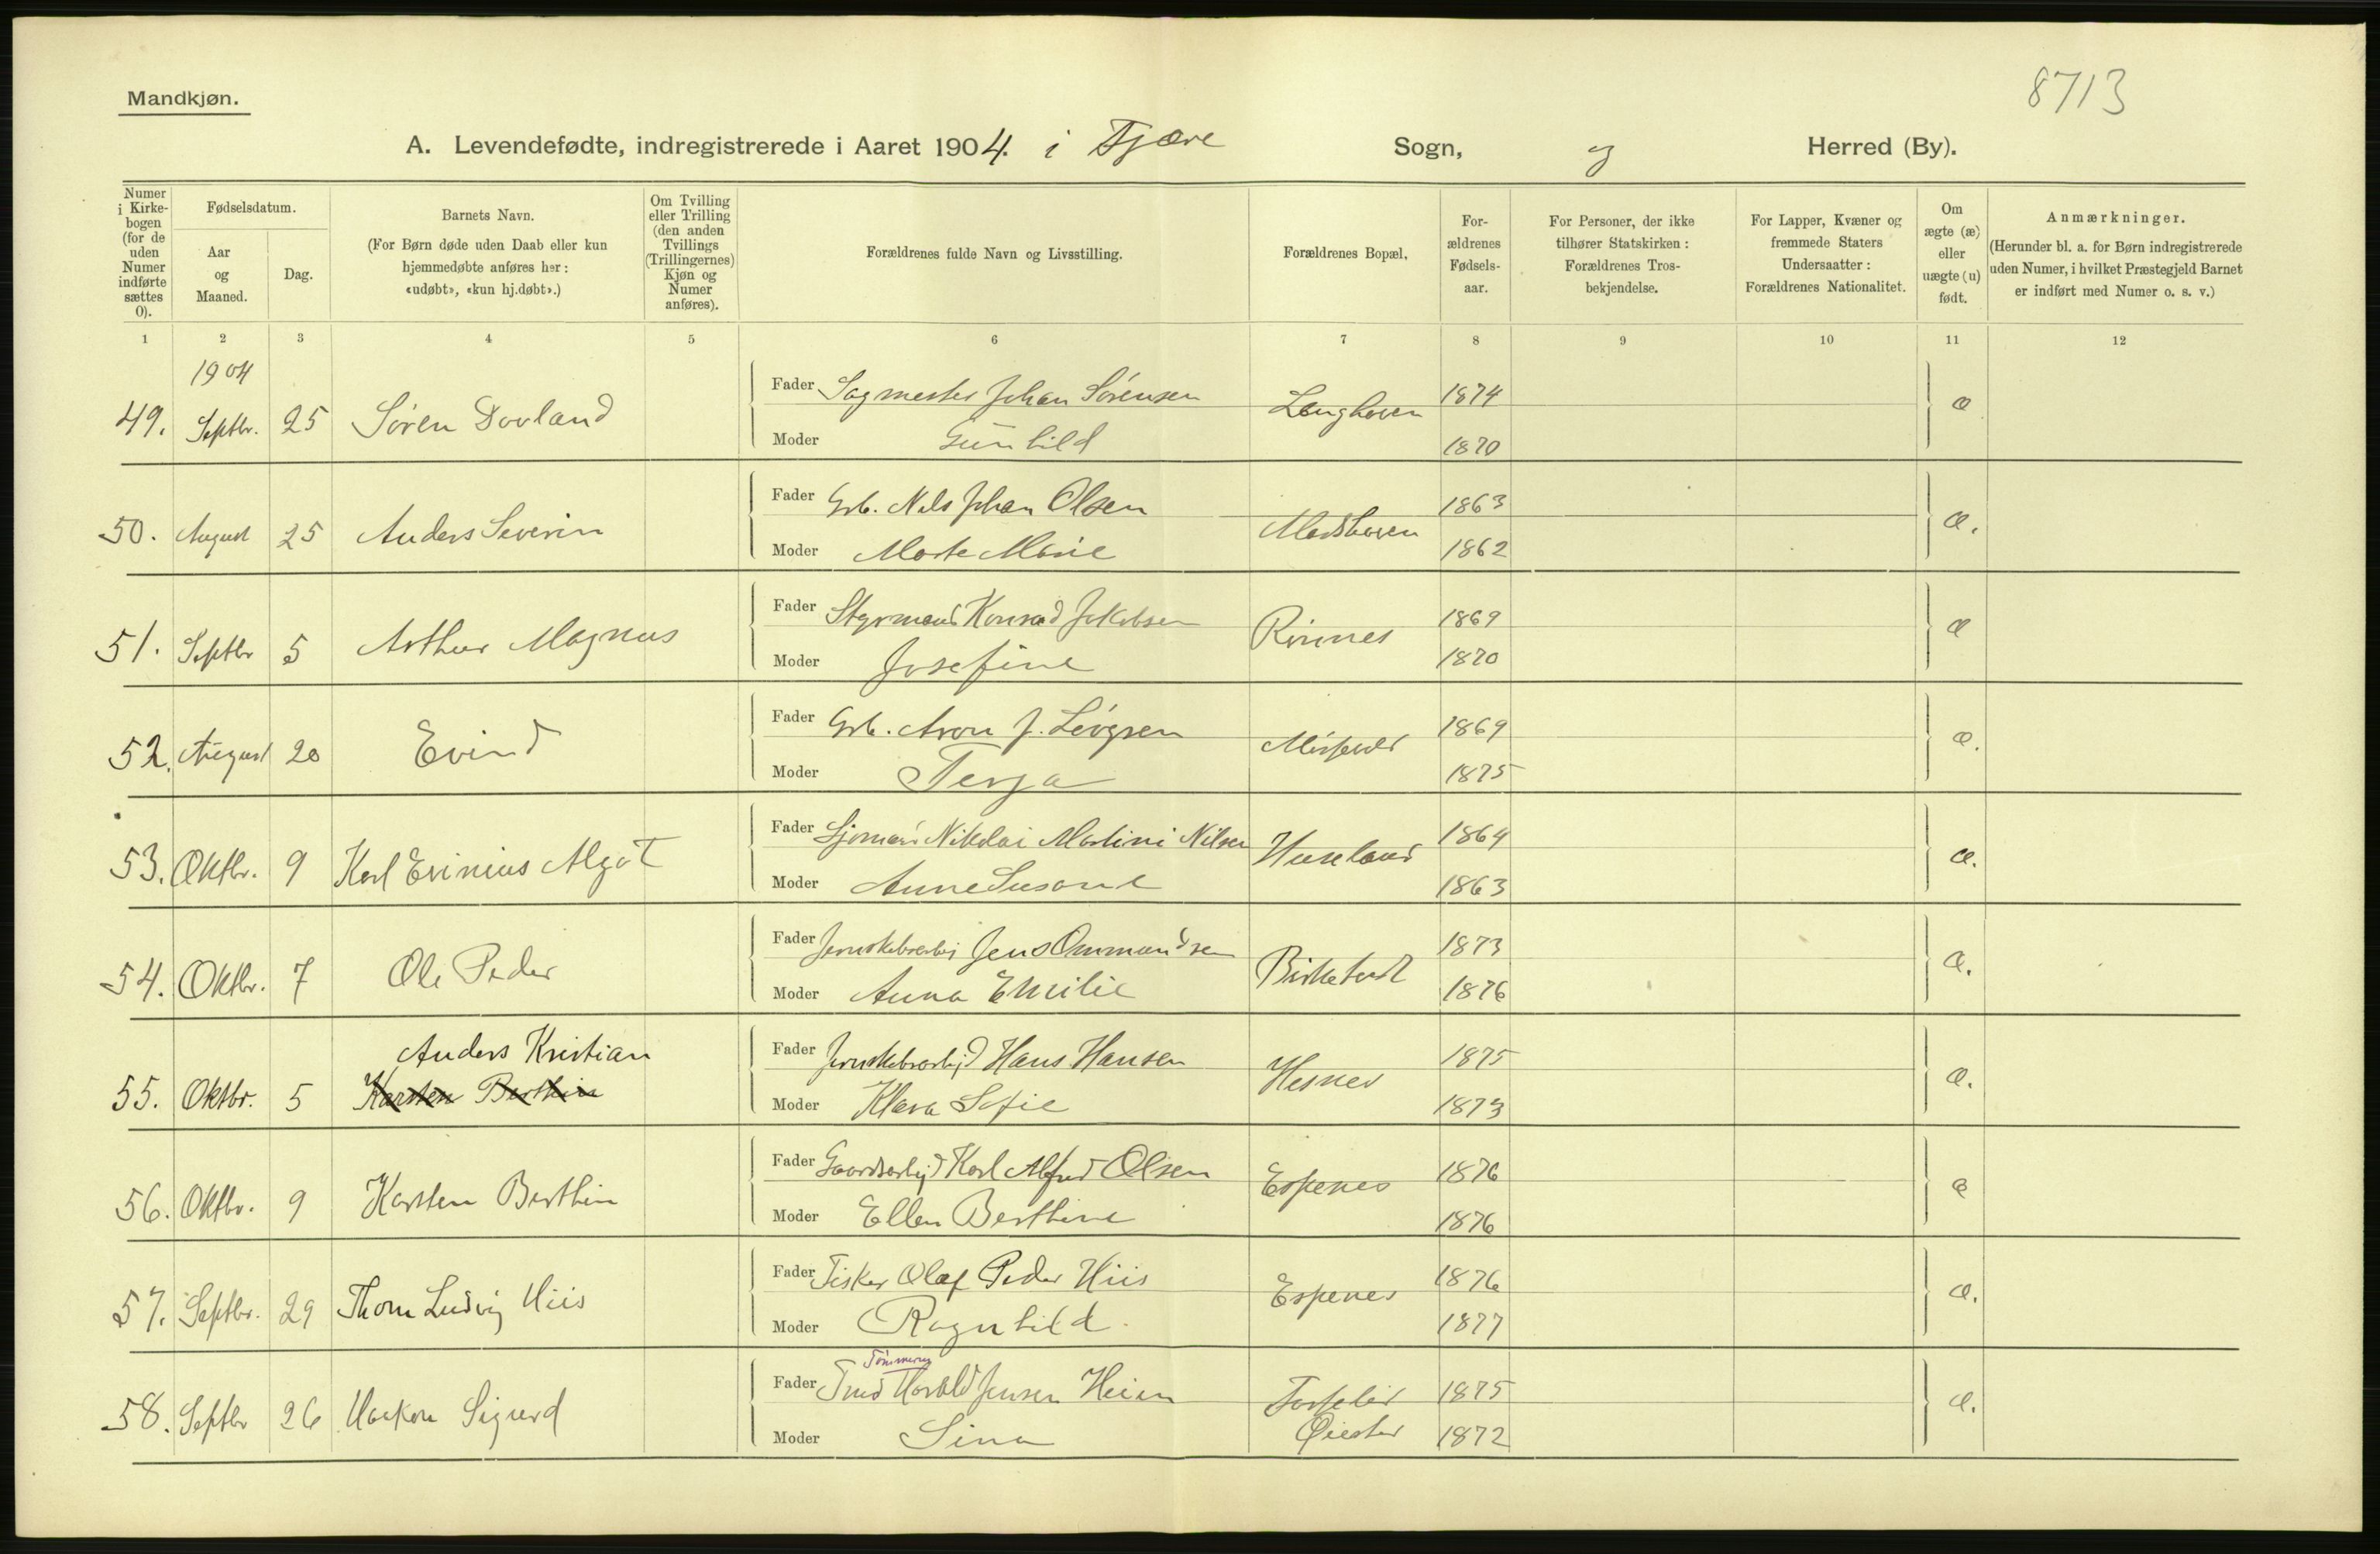 8713
Mandkjøn.
A. Levendefødte, indregistrerede i Aaret 1904. i Fjære Sogn, og Herred (By).
Numer i Kirkebogen (for de uden Numer indførte sættes 0).
Fødselsdatum.
Aar og Maaned.
Dag.
Barnets Navn.
(For Børn døde uden Daab eller kun hjemmedøbte anføres her: «udøbt», «kun hj.døbt».)
Om Tvilling eller Trilling (den anden Tvillings (Trillingernes) Kjøn og Numer anføres).
Forældrenes fulde Navn og Livsstilling.
Forældrenes Bopæl,
Forældrenes Fødselsaar.
For Personer, der ikke tilhører Statskirken: Forældrenes Trosbekjendelse.
For Lapper, Kvæner og fremmede Staters Undersaatter: Forældrenes Nationalitet.
Om ægte (æ) eller uægte (u) født.
Anmærkninger.
(Herunder bl. a. for Børn indregistrerede uden Numer, i hvilket Præstegjeld Barnet er indført med Numer o. s. v.)
1 2 3 4 5 6 7 8 9 10 11 12
1904
49. Septbr. 25 Søren Dovland Fader Sagmester Johan Sørensen Langhaven 1874 æ
Moder Gunhild 1870
50. August 25 Anders Severin Fader Grb. Nils Johan Olsen Madshaven 1863 æ.
Moder Marte Marie 1862
51. Septbr 5 Arthur Magnus Fader Styrmand Konrad Jakobsen Rønnes 1869 æ
Moder Josefine 1870
52. August 20 Evind Fader Grb. Aron J. 1869 æ.
Moder Terja 1875
53. Oktbr. 9 Karl Evinius Algot Fader Sjømand Nikolai Martini Nilsen Huseland 1864 æ.
Moder Anne Susane 1863
54. Oktbr. 7 Ole Peder Fader Jens Ommundsen Birketvedt 1873 æ.
Moder Anna Emilie 1876
Anders Kristian
55. Oktbr. 5 Karsten Berthin Fader Hans Hansen Hesnes 1875 æ.
Moder Klara Sofie 1873
56. Oktbr. 9 Karsten Berthin Fader Gaardsarbejd Karl Alfred Olsen Espenes 1876 æ
Moder Ellen Berthine 1876
57. Septbr. 29 Thom Ludvig Hiis Fader Fisker Olaf Peder Hiis Espenes 1876 æ.
Moder Ragnhild. 1877
Tømmerm
58. Septbr 26 Haakon Sigurd Fader Harald Jensen Heien 1875 æ.
Moder Sina Øiestad 1872